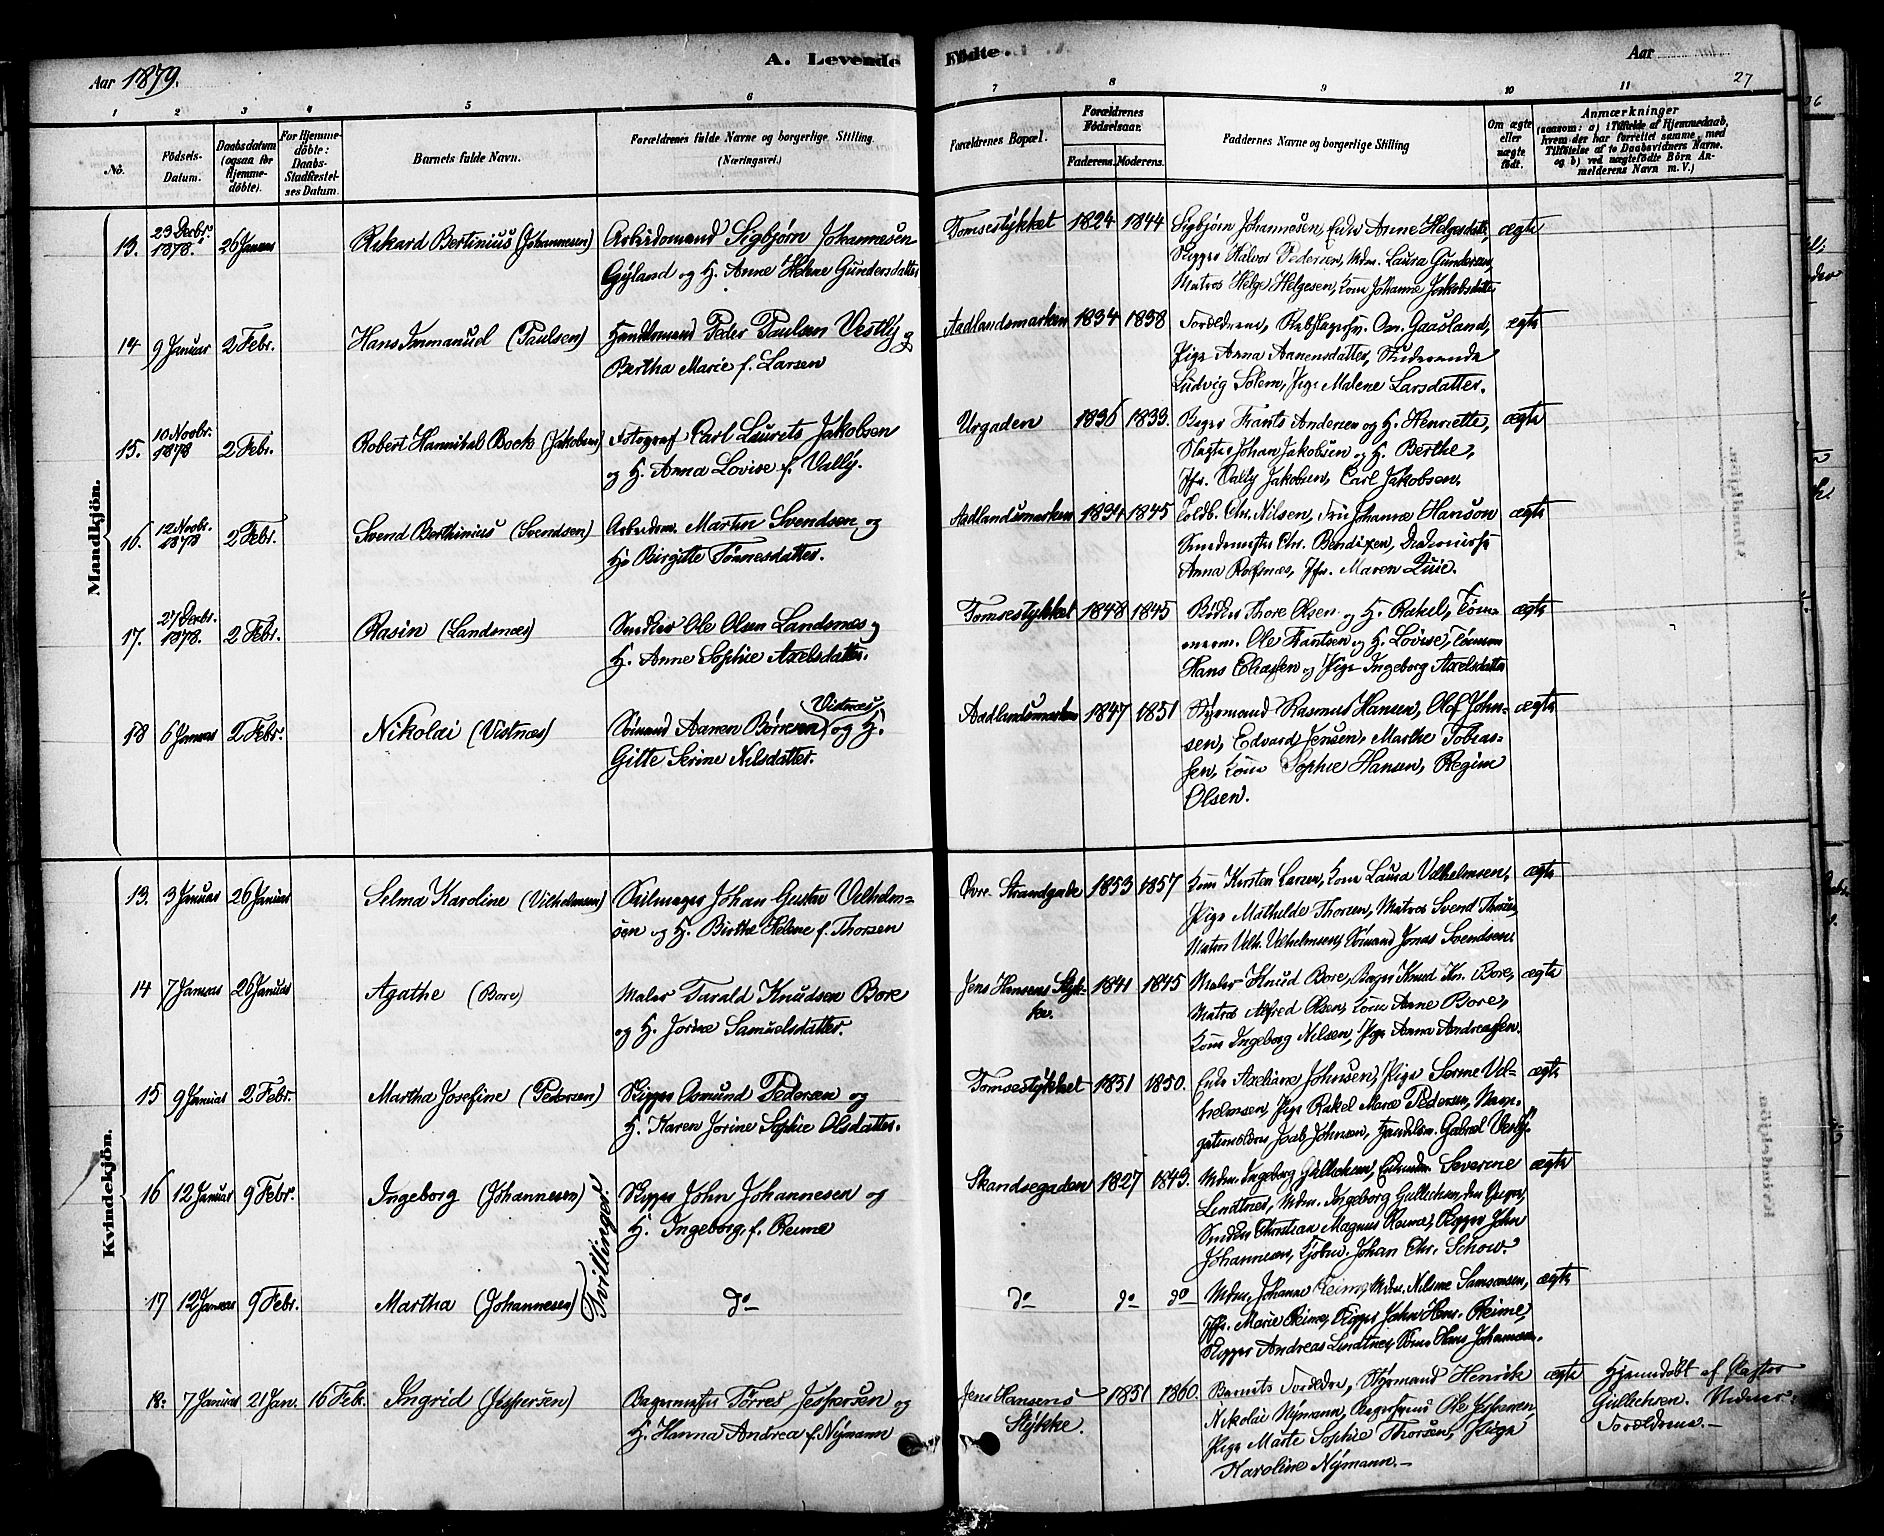 Aar 1879.
A. Levende Fødte.
Aar
27
1 2 3 4 5 6 7 8 9 10 11
No.
Fødsels-Datum.
Daabsdatum (ogsaa før Hjemmedøbte).
For Hjemmedøbte: Daabs-Stadfæstelses Datum.
Barnets fulde Navn.
Forældrenes fulde Navne og borgerlige Stilling. (Næringsvei.)
Forældrenes Bopæl.
Forældrenes Fødselsaar.
Faderens. Moderens.
Faddernes Navne og borgerlige Stilling
Om ægte eller uægte født.
Anmærkninger
(saasom: a) i Tilfælde af Hjemmedaab,
hvem der har forrettet samme, med
Tilføielse af to Daabsvidners Navne.
og b) ved uægtefødte Børn An-
melderens Navn m. V.)
Mandkjön.
13. 23 Decbr. 1878. 26 Januar Rikard Bertinius (Johannesen) Arbeidsmand Sigbjørn Johannesen Tomsestykket 1824 1844 Sigbjørn Johannesen, Enke Anne Helgesdatter, ægte
Gyland og H. Anne Helene Gundersdatter Skipper Halvor Pedersen, Mdm. Laura Gundersen,
Matros Helge Helgesen, Kone Johanne Jakobsdatter
14 9 Januar 2 Febr. Hans Immanuel (Paulsen) Handelsmand Peder Paulsen Vestly og Aadlandsmarken 1834 1838 Forældrene, Rebslagersv. Om. Gaasland, ægte
Bertha Marie f. Larsen Pige Anna Aanensdatter, Studerende
Ludvig Solem, Pige Malene Larsdatter.
15. 10 Novbr. 1878 2 Febr. Robert Hannibal Bock (Jakobsen) Fotograf Carl Laurets Jakobsen Urgaden 1836 1833. Bager Frants Andersen og H. Henriette, ægte
og H. Anna Lovise f. Vally. Slagter Johan Jakobsen og H. Berthe,
Jfr. Vally Jakobsen, Carl Jakobsen.
16. 12 Novbr. 1878 2 Febr. Svend Berthinius (Svendsen) Arbeidsm. Martin Svendsen og Aadlandsmarken 1834 1845 Toldb. Chr. Nilsen, Fru Johanne Hanson ægte
H. Birgitte Tønnesdatter. Smedemester Chr. Bendixen,
Anna Rolfsnæs, Jfr. Maren Quie.
17. 27 Decbr. 1878. 2 Febr. Rasin (Landsnæs) Snedker Ole Olsen Landsnæs og Tomsestykket 1848 1845 Bødker Thore Olsen og H. Rakel, Tøm- ægte
H. Anne Sophie Axelsdatter. merm. Ole Frantsen og H. Lovise, Tømmerm
Hans Eliassen og Pige Ingeborg Axelsdatter
18 6 Januar 2 Febr. Nikolai (Vistnæs) Sømand Aanen Børresen (Vistnæs) og H. Aadlandsmarken 1847 1851 Styrmand Rasmus Hansen, Olaf John- ægte
Gitte Serine Nilsdatter. sen, Edvard Jensen, Marthe Tobias-
sen, Kone Sophie Hansen, Regine
Olsen.
Kvindekjön.
13. 3 Januar 26 Januar Selma Karoline (Vilhelmsen) Seilmager Johan Gustav Vilhelm- Øvre Strandgade 1853 1857 Kone Kirsten Larsen, Kone Laura Vilhelmsen, ægte
sen og H. Birthe Helene f. Thorsen Pige Mathilde Thorsen, Matros Svend Thorsen,
Matros Vilh. Vilhelmsen, Sømand Jonas Svendsen.
14 7 Januar 26 Januar Agathe (Bore) Maler Tarald Knudsen Bore Jens Hansens Styk- 1841 1845 Maler Knud Bore, Bager Knud Kn. Bore, ægte
og H. Jorine Samuelsdatter. ke. Matros Alfred Olsen, Kone Anne Bore,
Kone Ingeborg Nilsen, Pige Anna Andreassen.
15 9 Januar 2 Febr. Martha Josefine (Pedersen) Skipper Osmund Pedersen og Tomsestykket 1851 1850. Enke Axeliane Johnsen, Pige Serine Vil- ægte
H. Karen Jorine Sophie Olsdatter. helmsen, Pige Rakel Marie Pedersen,
Jacob Johnsen, Handelsm. Gabriel Vestly.
16 12 Januar 9 Febr. Ingeborg (Johannesen) Tvillinger Skipper John Johannesen og Skandsegaden 1827 1843. Mdm. Ingeborg Gullichsen, Severine ægte
H. Ingeborg f. Reime Lindtnes, Mdm. Ingeborg Gullichsen,
Snedker Christian Magnus Reime, Skipper John
Johannesen, Kjøbm. Johan Chr. Schow.
17 12 Januar 9 Febr. Martha (Johannesen) do do do do Mdm. Johanne Reime, Mdm. Nilsine Samsonsen, ægte
Jfr. Marie Reime, Skipper John Hans. Reime,
Skipper Andreas Lindtnes, Hans Johannesen.
18. 7 Januar 21 Jan. 16 Febr. Ingrid (Jespersen) Bagermester Tørres Jespersen og Jens Hansens 1851 1860. Barnets Forældre, Styrmand Henrik ægte Hjemmdøbt af Pastor
H. Hanna Andrea f. Nymann Stykke. Nikolai Nymann, Bagersvend Ole Jespersen, Gullichsen. Vidner:
Pige Marte Sophie Thorsen, Pige Forældrene.—
Karoline Nymann.—